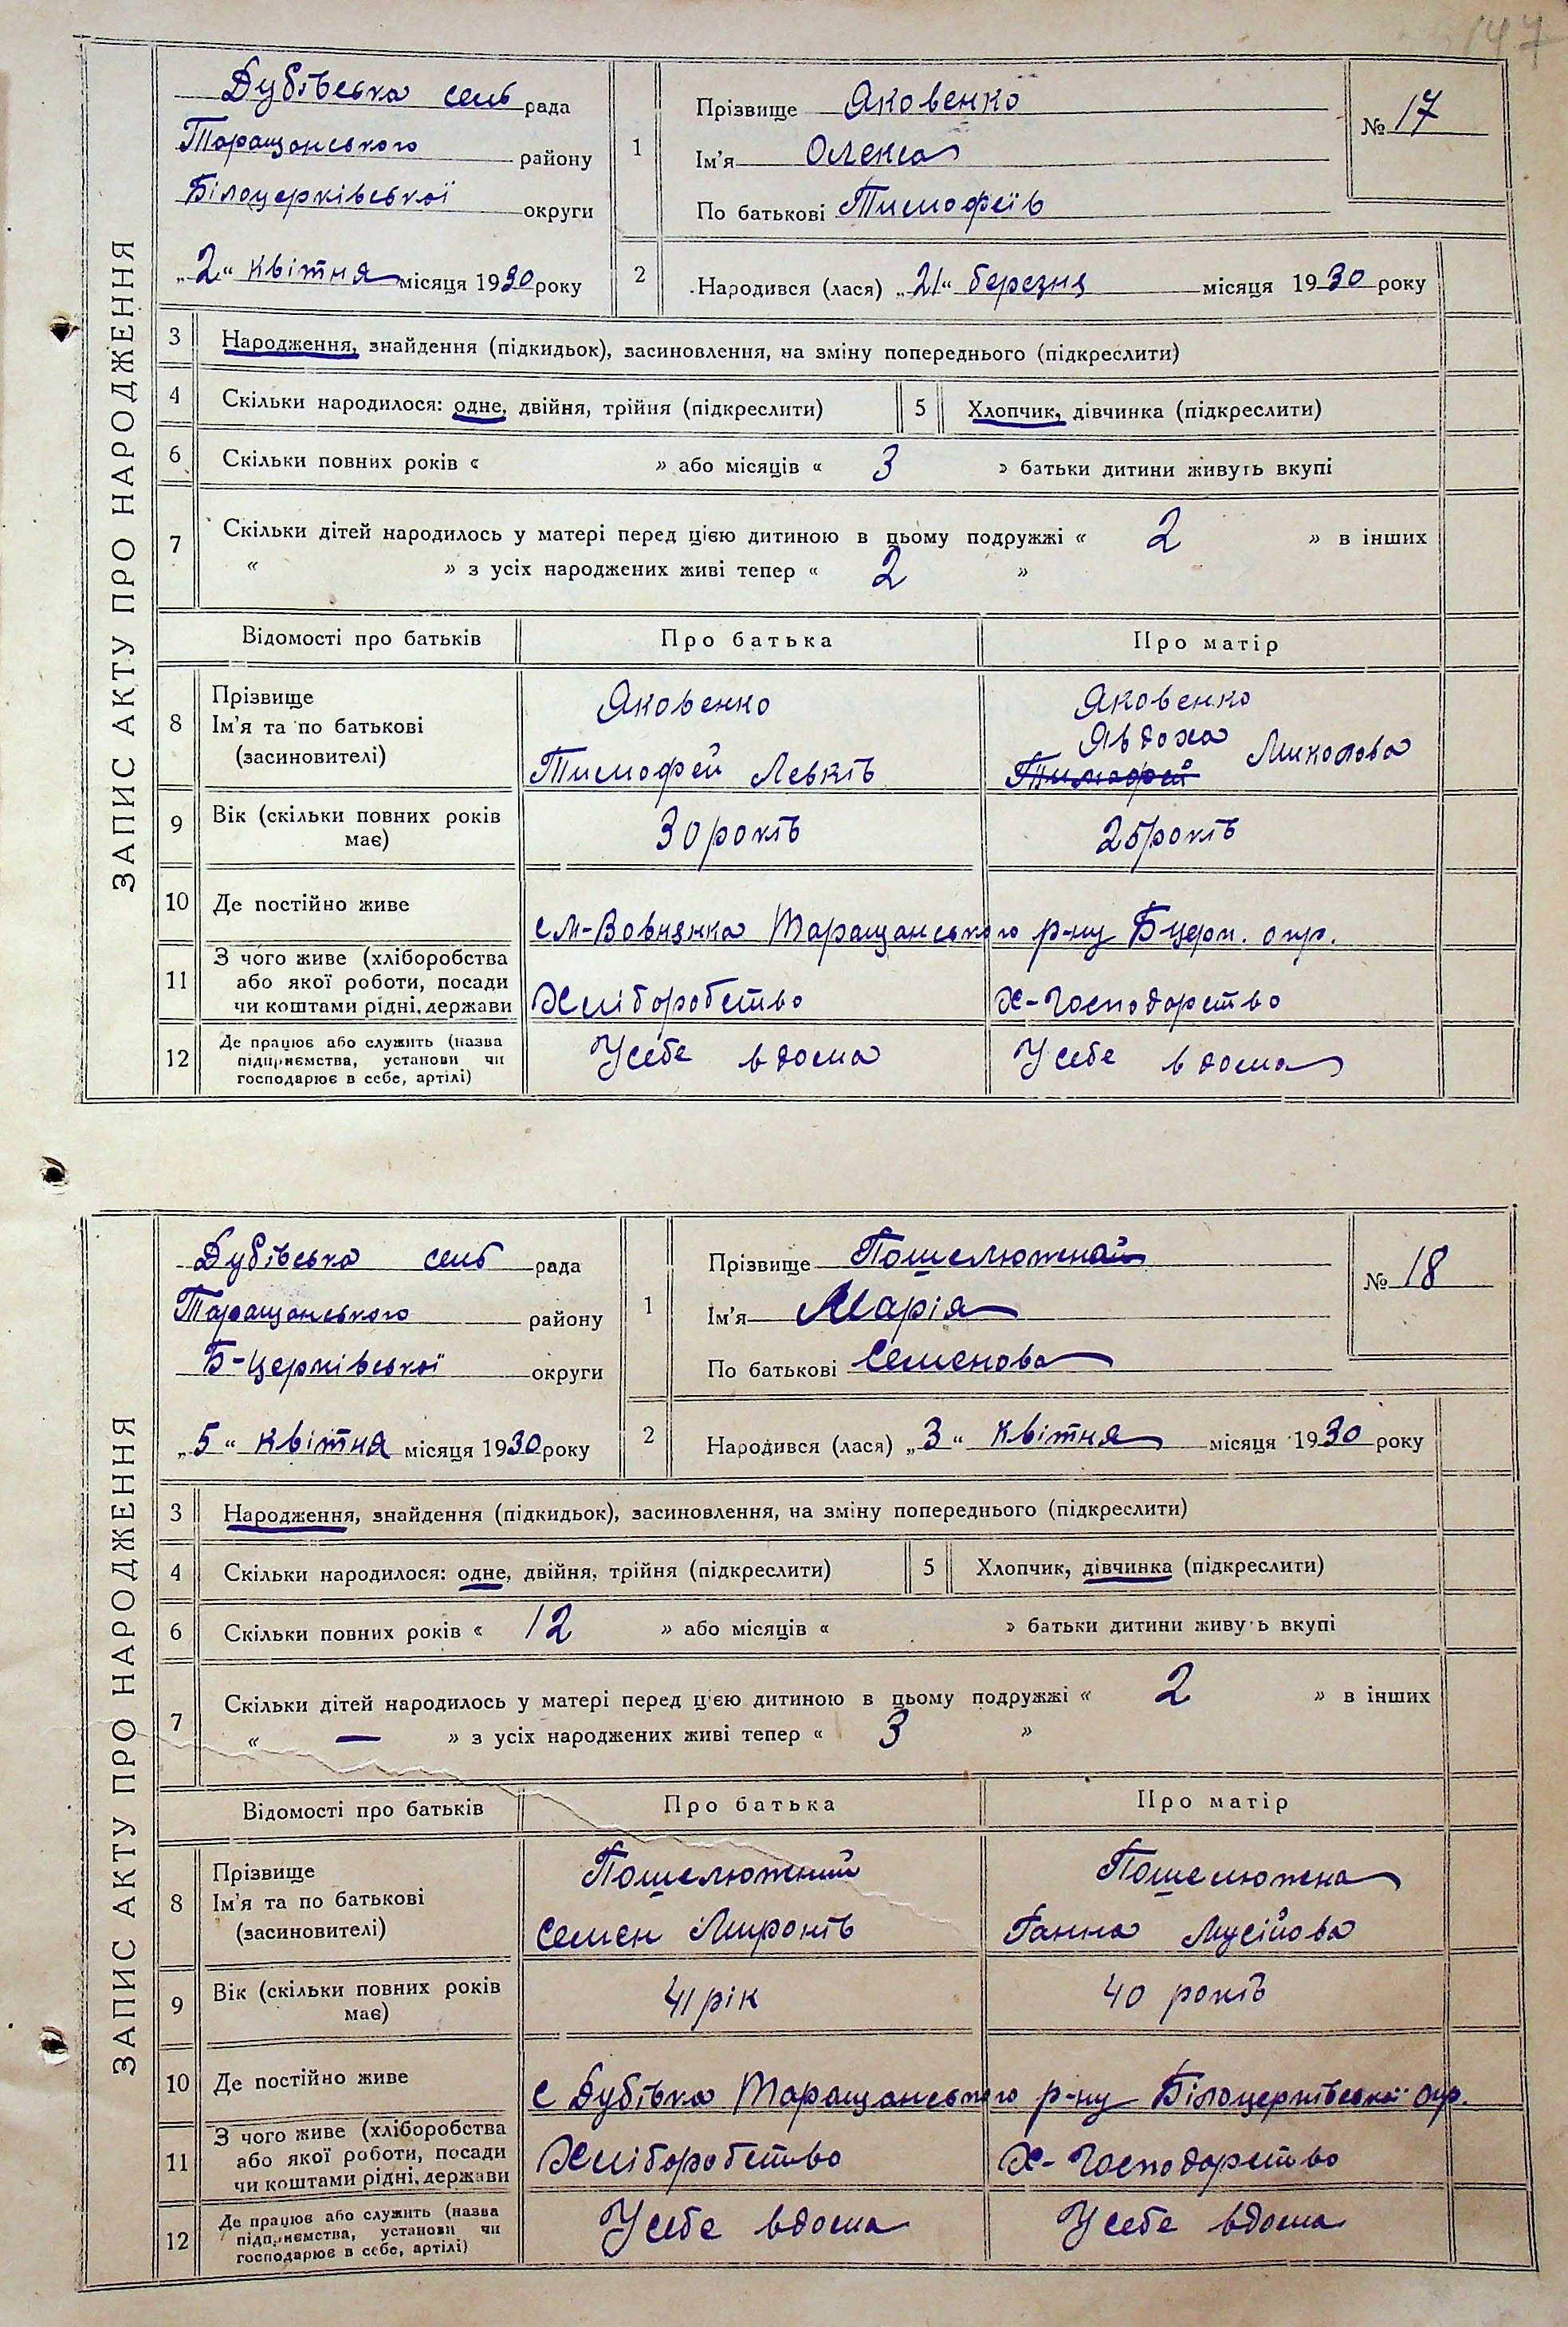 147
ЗАПИС АКТУ ПРО НАРОДЖЕННЯ
Дубівська сель рада
Таращанського району
Білоцерківської округи
„2“ квітня місяця 1930 року
1
Прізвище Яковенко
Ім'я Олекса
По батькові Тимофеїв
№ 17
2
Народився (лася) „21“ березня місяця 1930 року
3 Народження, знайдення (підкидьок), засиновлення, на зміну попереднього (підкреслити)
4 Скільки народилося: одне, двійня, трійня (підкреслити) 5 Хлопчик, дівчинка (підкреслити)
6 Скільки повних років « » або місяців « 3 » батьки дитини живуть вкупі
7 Скільки дітей народилось у матері перед цією дитиною в цьому подружжі « 2 » в інших
« » з усіх народжених живі тепер « 2 »
Відомості про батьків Про батька Про матір
8 Прізвище
Ім'я та по батькові
(засиновителі)
Яковенко
Тимофей Левків
Яковенко
Явдоха Миколова
Тимофей
9 Вік (скільки повних років
має)
30 років 25 років
10 Де постійно живе
с М-Вовнянка Таращанського р-ну Бцерк. окр.
11 З чого живе (хліборобства
або якої роботи, посади
чи коштами рідні, держави
Хліборобство Х-Господарство
12 Де працює або служить (назва
підприємства, установи чи
господарює в себе, артілі)
У себе вдома У себе вдома
ЗАПИС АКТУ ПРО НАРОДЖЕННЯ
Дубівська сель рада
Таращанського району
Б-Церківської округи
„5“ квітня місяця 1930 року
1
Прізвище Пошелюжной
Ім'я Марія
По батькові Семенова
№ 18
2
Народився (лася) „3“ квітня місяця 1930 року
3 Народження, знайдення (підкидьок), засиновлення, на зміну попереднього (підкреслити)
4 Скільки народилося: одне, двійня, трійня (підкреслити) 5 Хлопчик, дівчинка (підкреслити)
6 Скільки повних років « 12 » або місяців « » батьки дитини живуть вкупі
7 Скільки дітей народилось у матері перед цією дитиною в цьому подружжі « 2 » в інших
« — » з усіх народжених живі тепер « 3 »
Відомості про батьків Про батька Про матір
8 Прізвище
Ім'я та по батькові
(засиновителі)
Пошелюжний
Семен Миронів
Пошелюжна
Ганна Мусійова
9 Вік (скільки повних років
має)
41 рік 40 років
10 Де постійно живе
с Дубівка Таращанського р-ну Білоцерківської окр.
11 З чого живе (хліборобства
або якої роботи, посади
чи коштами рідні, держави
Хліборобство Х-Господарство
12 Де працює або служить (назва
підприємства, установи чи
господарює в себе, артілі)
У себе вдома У себе вдома